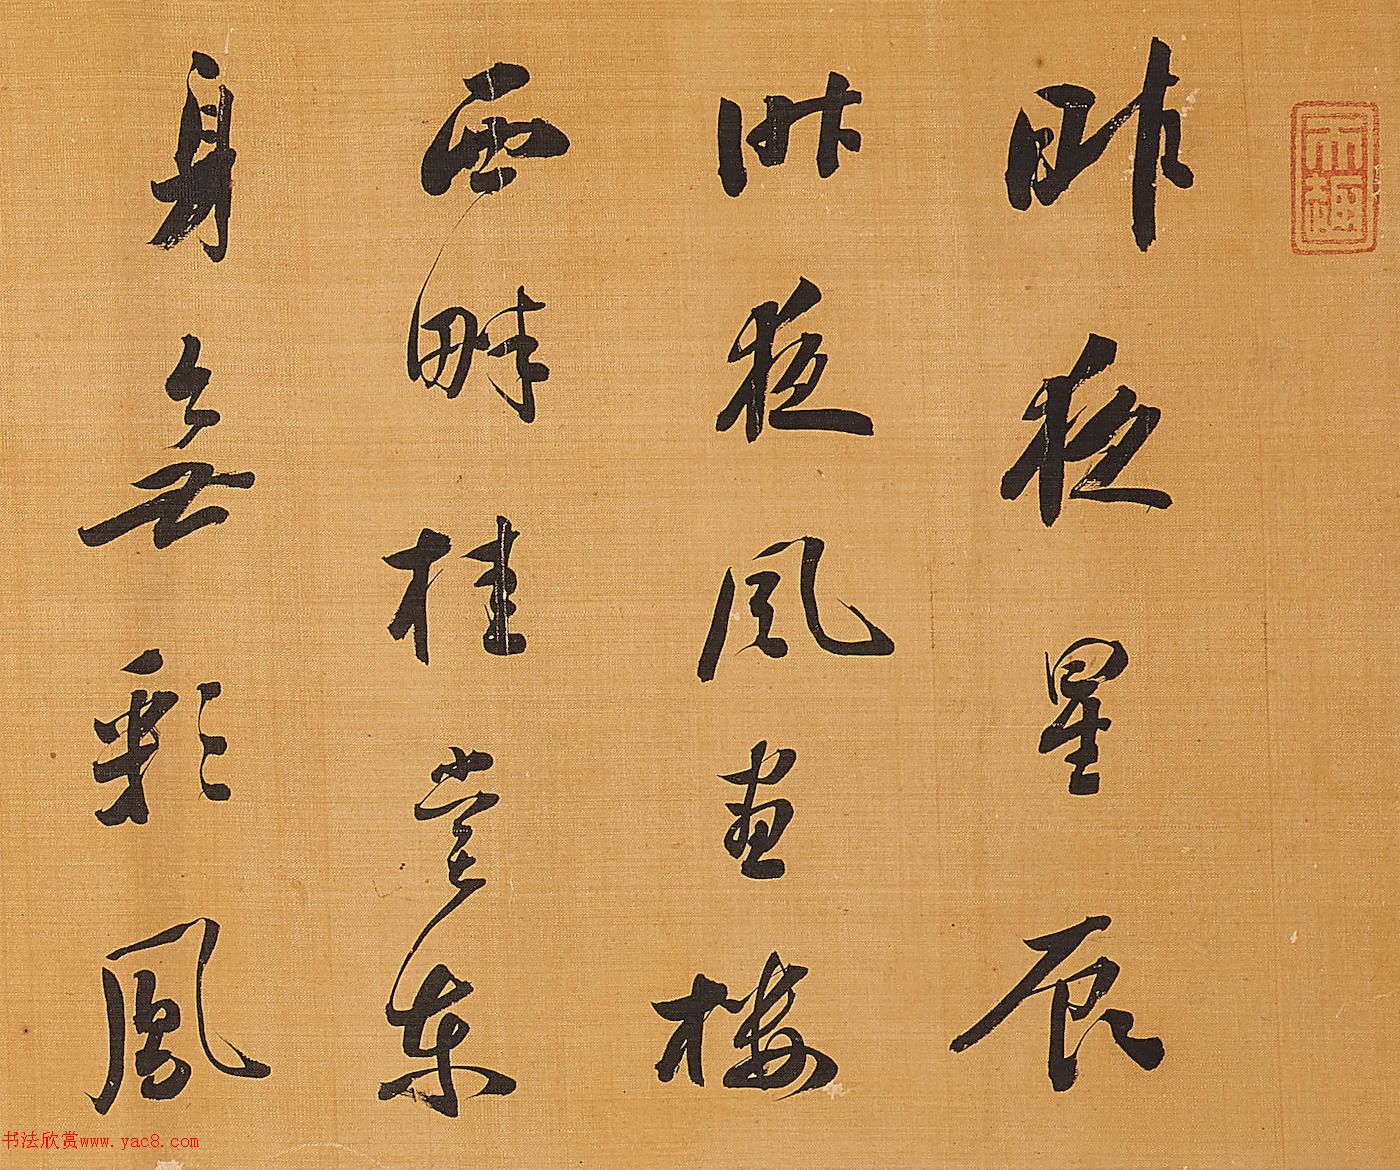 昨夜星辰
昨夜風畫樓
西畔桂堂東
身無彩鳳
书法欣赏www.yac8.com